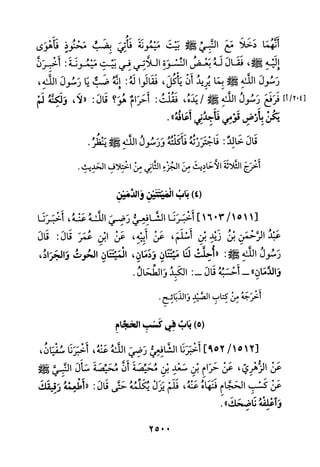 أَنَّهُمَا دَخَلَا مَعَ النَّبِيِّ ﷺ بَيْتَ مَيْمُونَةَ فَأُتِيَ بِضَبٍّ مَحْنُوذٍ فَأَهْوَى
إِلَيْهِ ﷺ، فَقَالَ لَهُ بَعْضُ النِّسْوَةِ اللَّاتِي فِي بَيْتِ مَيْمُونَةَ: أَخْبِرْنَ
رَسُولَ اللَّهِ ﷺ بِمَا يُرِيدُ أَنْ يَأْكُلَ، فَقَالُوا لَهُ: إِنَّهُ ضَبٌّ يَا رَسُولَ اللَّهِ،
فَرَفَعَ رَسُولُ اللَّهِ ﷺ / يَدَهُ، فَقُلْتُ: أَحَرَامٌ هُوَ؟ قَالَ: «لَا، وَلَكِنَّهُ لَمْ [٢٠٤/أ]
يَكُنْ بِأَرْضِ قَوْمِي فَأَجِدُنِي أَعَافُهُ».
قَالَ خَالِدٌ: فَاجْتَرَرْتُهُ فَأَكَلْتُهُ وَرَسُولُ اللَّهِ ﷺ يَنْظُرُ.
أَخْرَجَ الثَّلَاثَةَ الْأَحَادِيثَ مِنَ الْجُزْءِ الثَّانِي مِنِ اخْتِلَافِ الْحَدِيثِ.
(٤) بَابُ الْمَيْتَتَيْنِ وَالدَّمَيْنِ
[١٦٠٣/١٥١١] أَخْبَرَنَا الشَّافِعِيُّ رَضِيَ اللَّهُ عَنْهُ، أَخْبَرَنَا
عَبْدُ الرَّحْمَنِ بْنُ زَيْدِ بْنِ أَسْلَمَ، عَنْ أَبِيهِ، عَنِ ابْنِ عُمَرَ قَالَ: قَالَ
رَسُولُ اللَّهِ ﷺ: «أُحِلَّتْ لَنَا مَيْتَتَانِ وَدَمَانِ، الْمَيْتَتَانِ الْحُوتُ وَالْجَرَادُ،
وَالدَّمَانِ» – أَحْسَبُهُ قَالَ –: الْكَبِدُ وَالطِّحَالُ.
أَخْرَجَهُ مِنْ كِتَابِ الصَّيْدِ وَالذَّبَائِحِ.
(٥) بَابٌ فِي كَسْبِ الْحَجَّامِ
[٩٥٢/١٥١٢] أَخْبَرَنَا الشَّافِعِيُّ رَضِيَ اللَّهُ عَنْهُ، أَخْبَرَنَا سُفْيَانُ،
عَنِ الزُّهْرِيِّ، عَنْ حَرَامِ بْنِ سَعْدِ بْنِ مُحَيِّصَةَ أَنَّ مُحَيِّصَةَ سَأَلَ النَّبِيَّ ﷺ
عَنْ كَسْبِ الْحَجَّامِ فَنَهَاهُ عَنْهُ، فَلَمْ يَزَلْ يُكَلِّمُهُ حَتَّى قَالَ: «أَطْعِمْهُ رَقِيقَكَ
وَاعْلِفْهُ نَاضِحَكَ».
٢٥٠٠